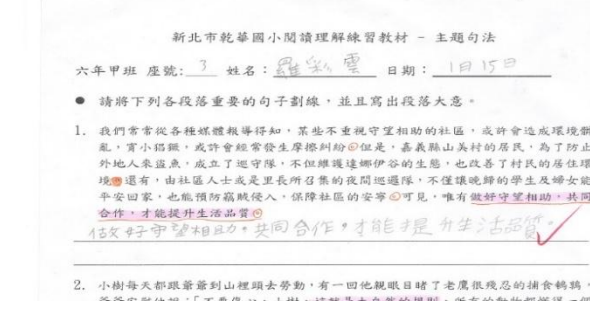 新北市乾華國小閱讀理解練習教材 - 主題句法
六年甲班 座號: 3 姓名:羅彩雲 日期:1月15日
● 請將下列各段落重要的句子劃線,並且寫出段落大意。
1. 我們常常從各種媒體報導得知,某些不重視守望相助的社區,或許會造成環境髒
亂,宵小猖獗,或許會經常發生摩擦糾紛。但是,嘉義縣山美村的居民,為了防止
外地人來盜魚,成立了巡守隊,不但維護達娜伊谷的生態,也改善了村民的居住環
境。還有,由社區人士或是里長所召集的夜間巡邏隊,不僅讓晚歸的學生及婦女能
平安回家,也能預防竊賊侵入,保障社區的安寧。可見,唯有做好守望相助,共同
合作,才能提升生活品質。
做好守望相助。共同合作,才能提升生活品質。
2. 小樹每天都跟爺爺到山裡頭去勞動,有一回他親眼目睹了老鷹很殘忍的捕食鵪鶉,